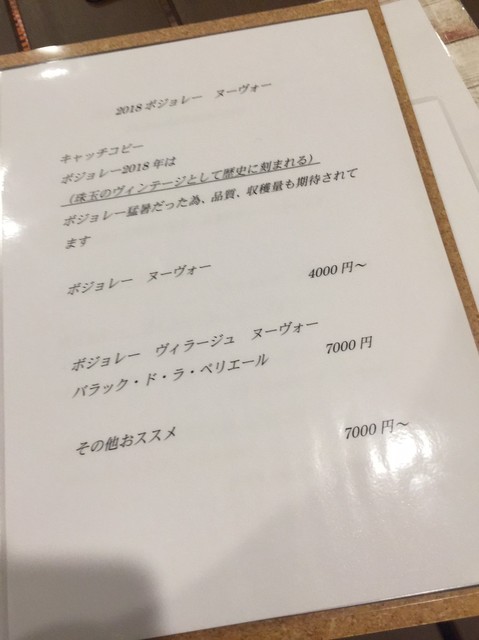 2018ボジョレー　ヌーヴォー
キャッチコピー
ボジョレー2018年は
（珠玉のヴィンテージとして歴史に刻まれる）
ボジョレー猛暑だった為、品質、収穫量も期待されて
ます
ボジョレー　ヌーヴォー　4000円～
ボジョレー　ヴィラージュ　ヌーヴォー
バラック・ド・ラ・ペリエール　7000円
その他おススメ　7000円～